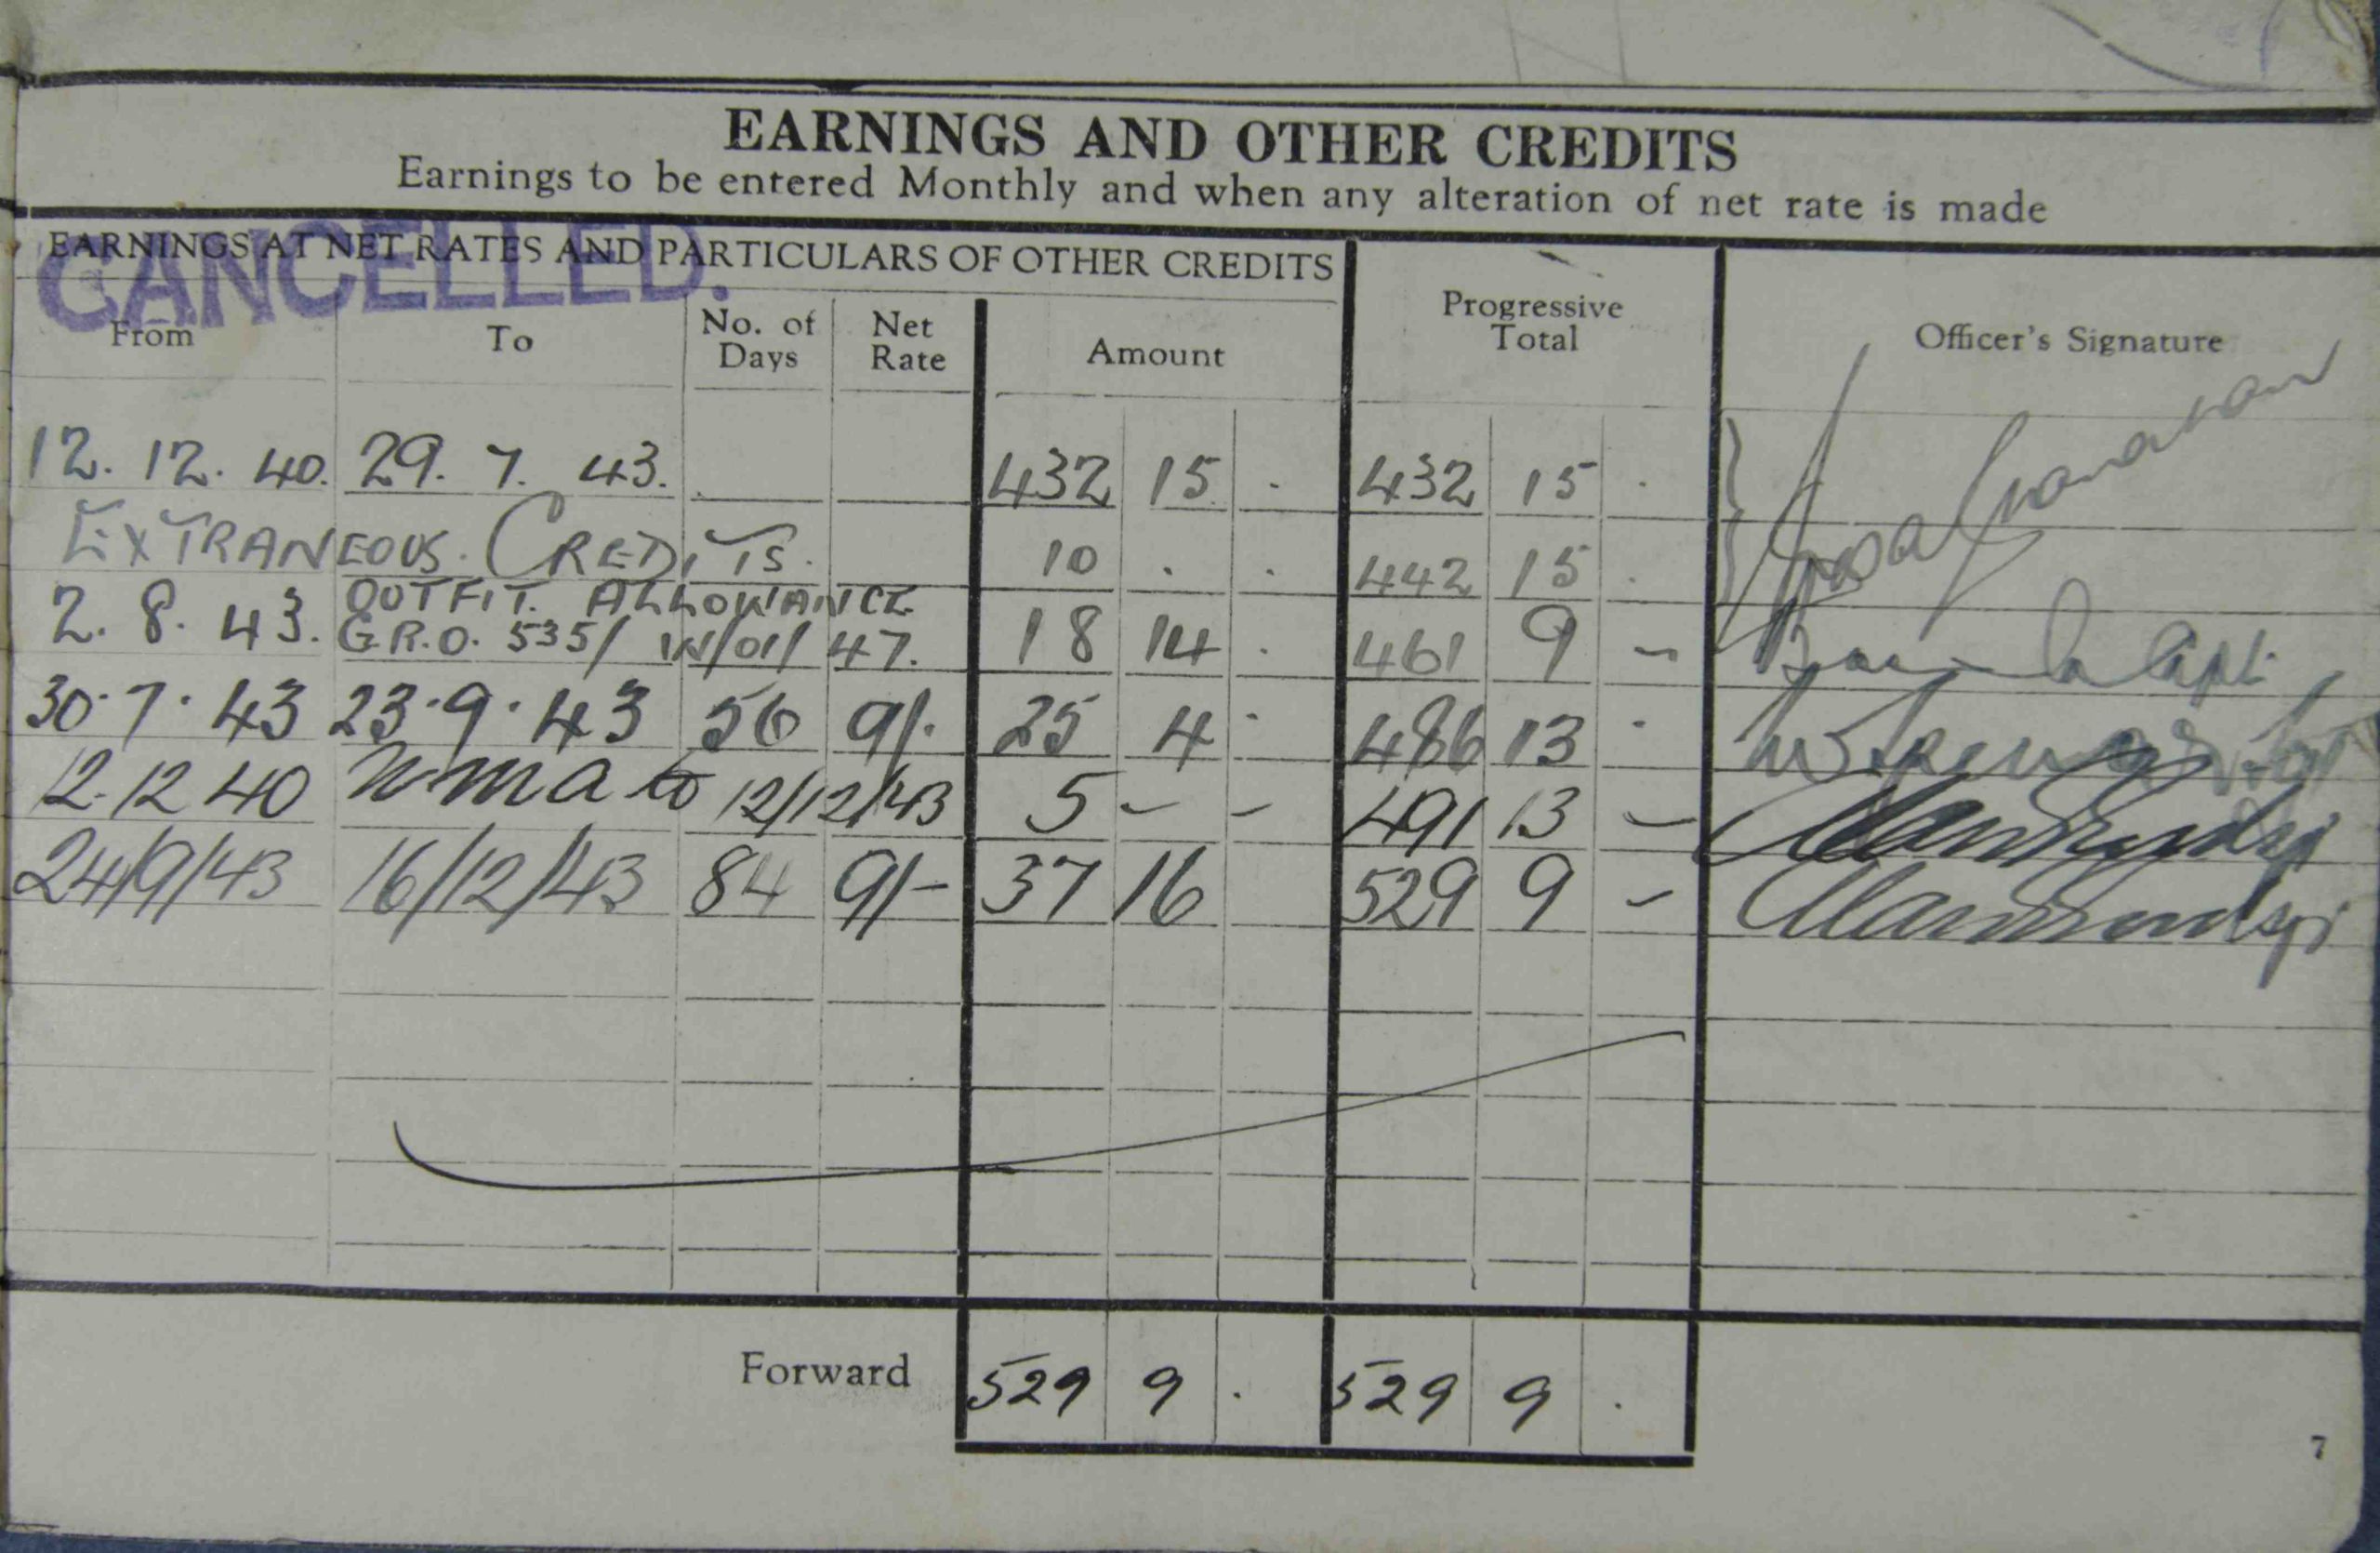 EARNINGS AND OTHER CREDITS
Earnings to be entered Monthly and when any alteration of net rate is made
EARNINGS AT NET RATES AND PARTICULARS OF OTHER CREDITS
CANCELLED.
From To No. of Days Net Rate Amount Progressive Total Officer's Signature
12. 12. 40. 29. 7. 43. 432 15 . 432 15 .
EXTRANEOUS. CREDITS. 10 . . 442 15 .
OUTFIT. ALLOWANCE
2. 8. 43. G.R.O. 535/ 47. 18 14 . 461 9 - Capt.
30.7.43 23.9.43 56 9/. 25 4 . 486 13 .
12.12 40 to 12/12/43 5 - - 491 13 -
24/9/43 16/12/43 84 9/- 37 16 529 9 -
Forward 529 9 . 529 9 .
7